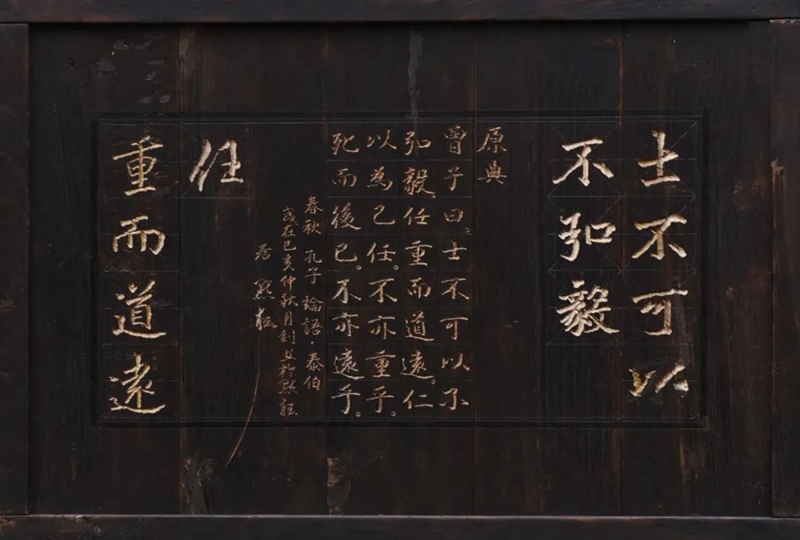 士不可以
不弘毅
原典
曾子曰：士不可以不
弘毅，任重而道遠。仁
以為己任。不亦重乎。
死而後已。不亦遠乎。
春秋 孔子 論語·泰伯
歲在己亥仲秋月刻
任
重而道遠